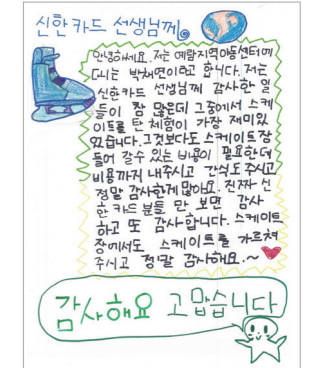 신한카드 선생님께
안녕하세요. 저는 예람지역아동센터에
다니는 박채연이라고 합니다. 저는
신한카드 선생님께 감사한 일
들이 참 많은데 그중에서 스케
이트를 탄 체험이 가장 재미있
었습니다. 그것보다도 스케이트장
들어 갈수 있는 비용이 필요한데
비용까지 내주시고 간식도 주시고
정말 감사한게 많아요. 진짜 신
한 카드 분들 만 보면 감사
하고 또 감사합니다. 스케이트
장에서도 스케이트를 가르쳐
주시고 정말 감사해요.~
감사해요 고맙습니다